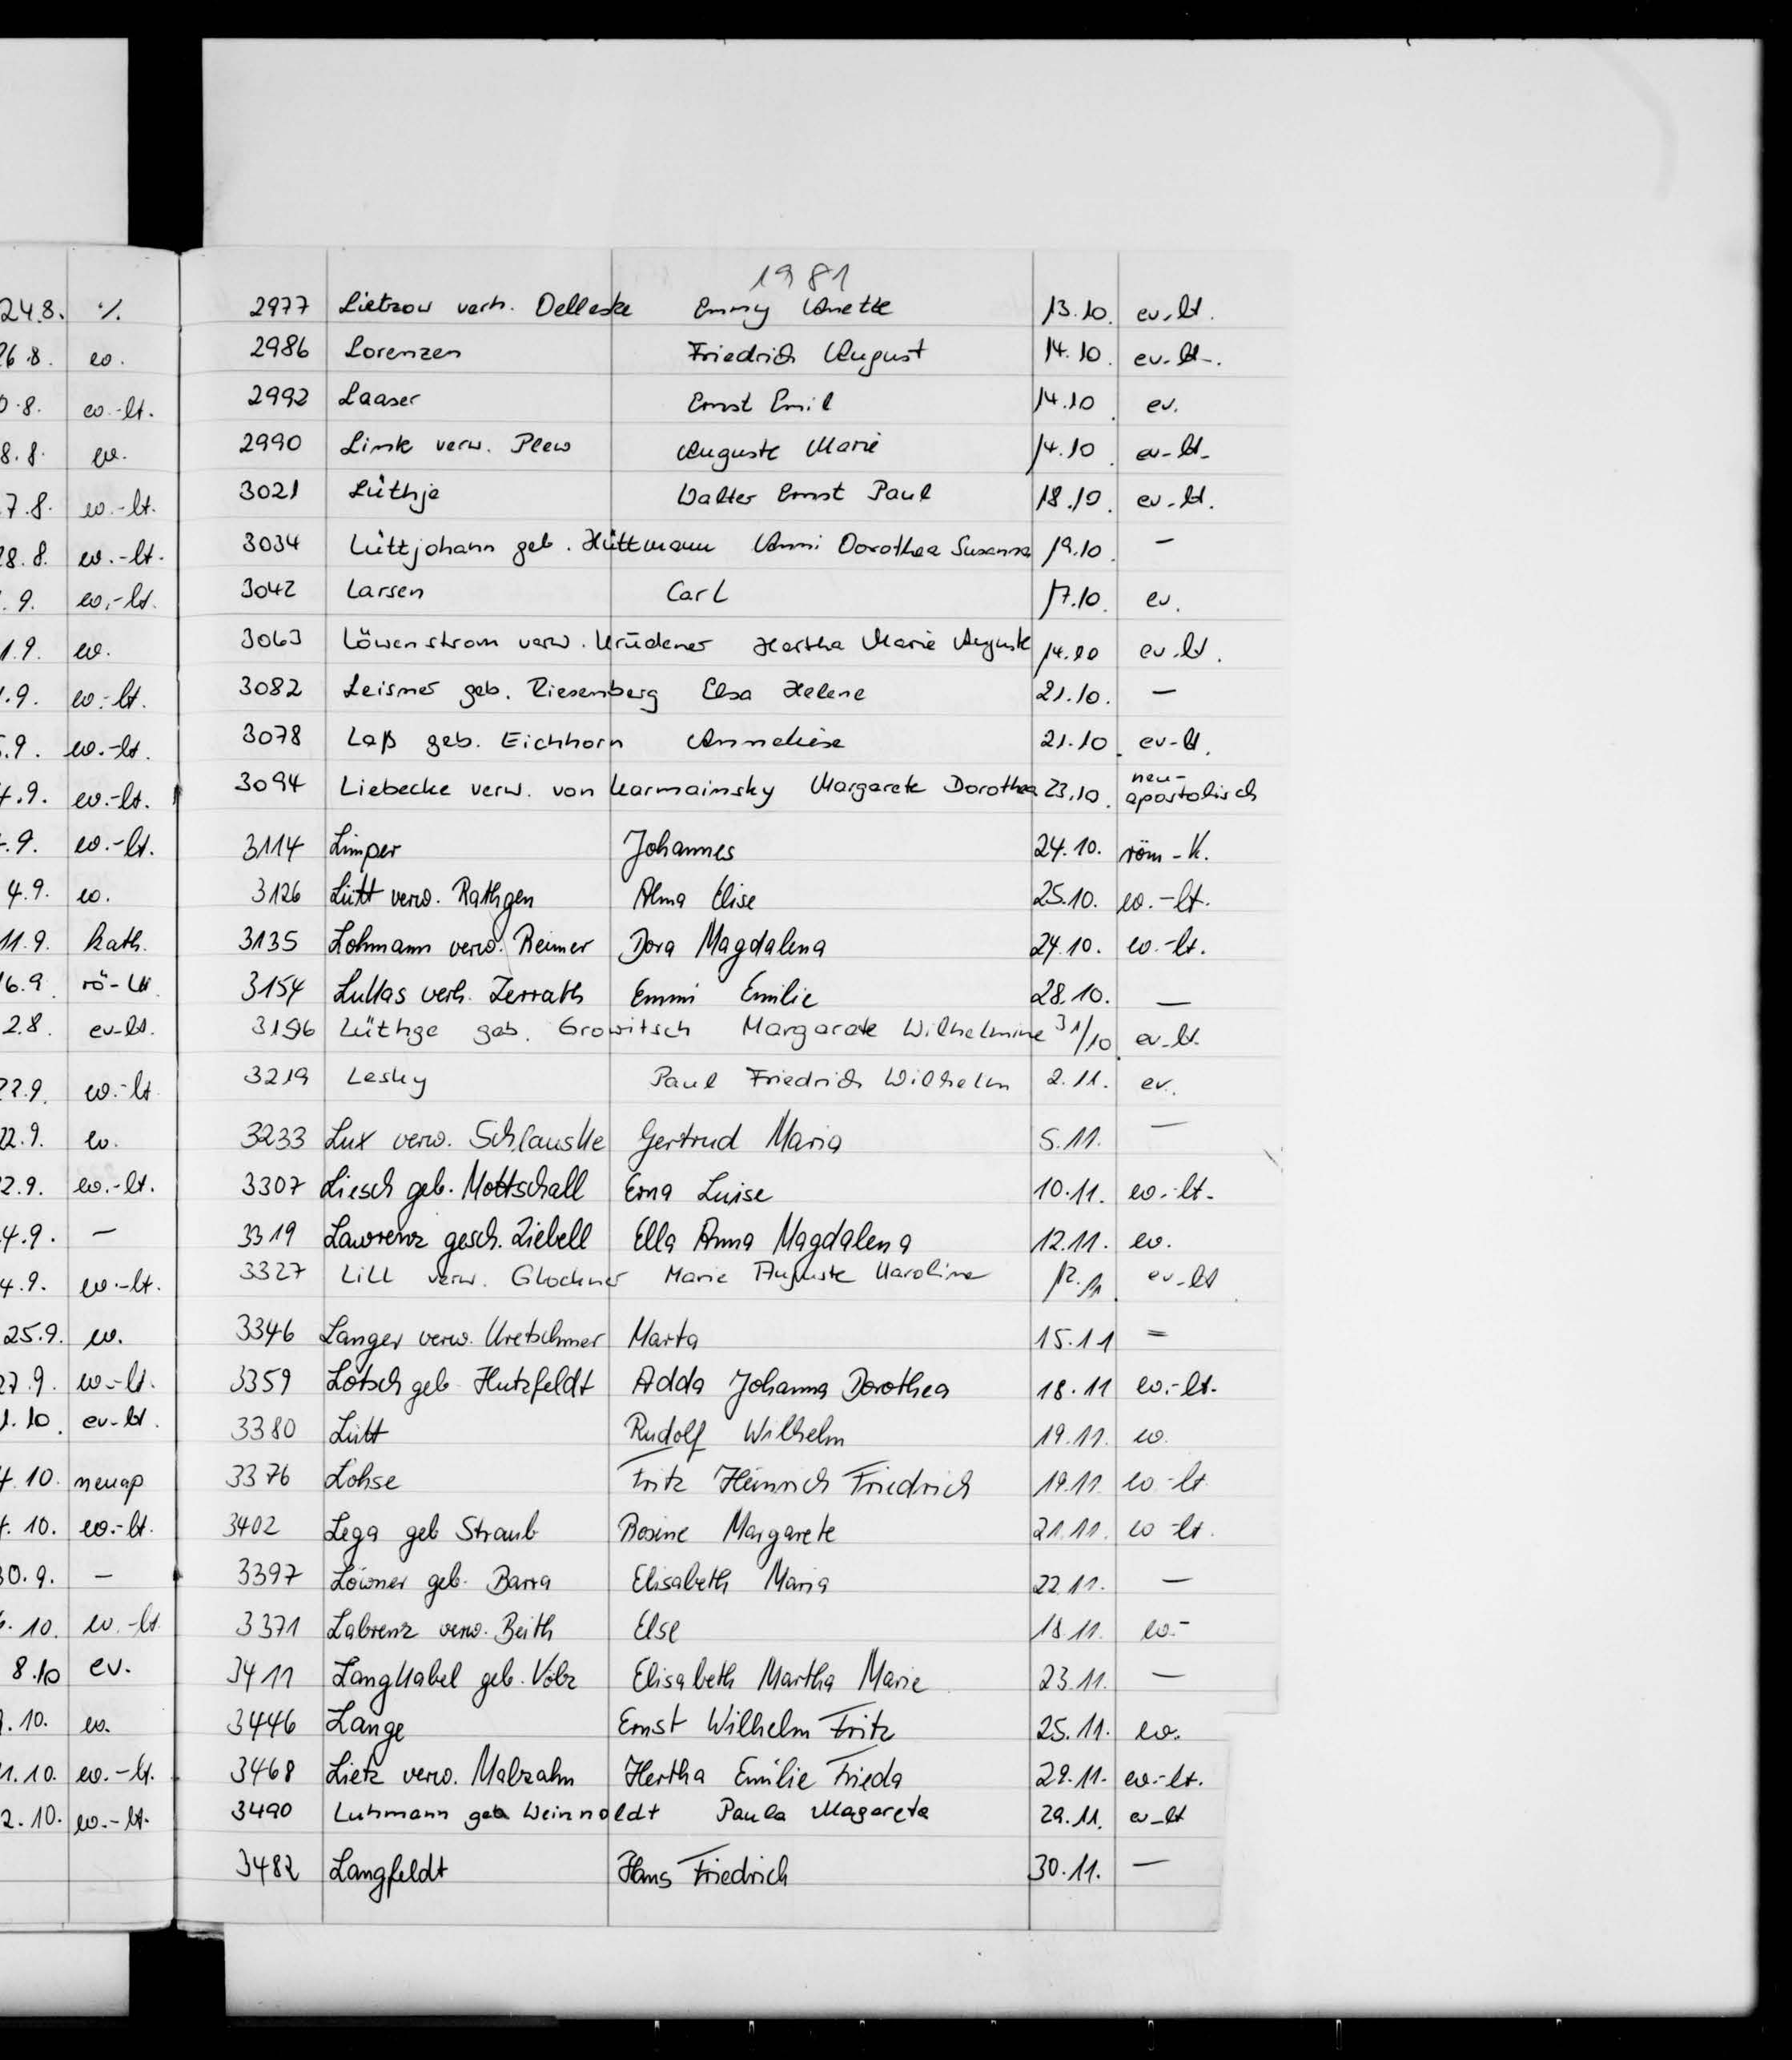 24.8. ·/.
26.8. ev.
0.8. ev.-lt.
8.8. ev.
7.8. ev.-lt.
28.8. ev.-lt.
.9. ev.-lt.
1.9. ev.
.9. ev.-lt.
.9. ev.-lt.
4.9. ev.-lt.
.9. ev.-lt.
4.9. ev.
11.9. kath.
16.9. rö-K
2.8. ev-lt.
22.9. ev.-lt
22.9. ev.
22.9. ev.-lt.
4.9. —
4.9. ev.-lt.
25.9. ev.
27.9. ev.-lt.
1.10. ev-lt.
10. neuap
10. ev.-lt.
30.9. —
.10. ev.-lt.
8.10 ev.
.10. ev.
1.10. ev.-lt.
2.10. ev.-lt.
1981
2977 Lietzow verh. Delleske Emmy Anette 13.10. ev.lt.
2986 Lorenzen Friedrich August 14.10. ev-lt-.
2992 Laaser Ernst Emil 14.10. ev.
2990 Link verw. Plew Auguste Marie 14.10. ev-lt-
3021 Lüthje Walter Ernst Paul 18.10. ev-lt.
3034 Lüttjohann geb. Hüttmann Anni Dorothea Susanna 19.10. —
3042 Larsen Carl 17.10. ev.
3063 Löwenstrom verw. Krüdener Hertha Marie Auguste 14.10 ev.lt.
3082 Leisner geb. Riesenberg Elsa Helene 21.10. —
3078 Laß geb. Eichhorn Anneliese 21.10. ev-lt.
3094 Liebecke verw. von Karmainsky Margarete Dorothea 23.10. neu-apostolisch
3114 Limper Johannes 24.10. röm-K.
3126 Lütt verw. Rathgen Alma Elise 25.10. ev.-lt.
3135 Lohmann verw. Reimer Dora Magdalena 24.10. ev.-lt.
3154 Lukas verh. Zerrath Emmi Emilie 28.10. —
3196 Lüthge geb. Growitsch Margarete Wilhelmine 31/10. ev-lt.
3219 Lesky Paul Friedrich Wilhelm 2.11. ev.
3233 Lux verw. Schlauske Gertrud Maria 5.11. —
3307 Liesch geb. Mottschall Erna Luise 10.11. ev.-lt.
3319 Lawrenz gesch. Ziebell Ella Anna Magdalena 12.11. ev.
3327 Lill verw. Glockner Marie Auguste Karoline 12.11. ev-lt.
3346 Langer verw. Kretschmer Marta 15.11 =
3359 Lötsch geb Hutzfeldt Adda Johanna Dorothea 18.11 ev.-lt.
3380 Lütt Rudolf Wilhelm 19.11. ev.
3376 Lohse Fritz Heinrich Friedrich 19.11. ev-lt
3402 Lega geb Straub Rosine Margarete 21.11. ev-lt.
3397 Löwner geb. Barra Elisabeth Maria 22.11. —
3371 Labrenz verw. Beith Else 18.11. ev.-
3411 Langkabel geb. Völz Elisabeth Martha Marie 23.11. —
3446 Lange Ernst Wilhelm Fritz 25.11. ev.
3468 Lietz verw. Malzahn Hertha Emilie Frieda 29.11. ev.-lt.
3490 Luhmann geb Weinnoldt Paula Magareta 29.11. ev-lt
3482 Langfeldt Hans Friedrich 30.11. —